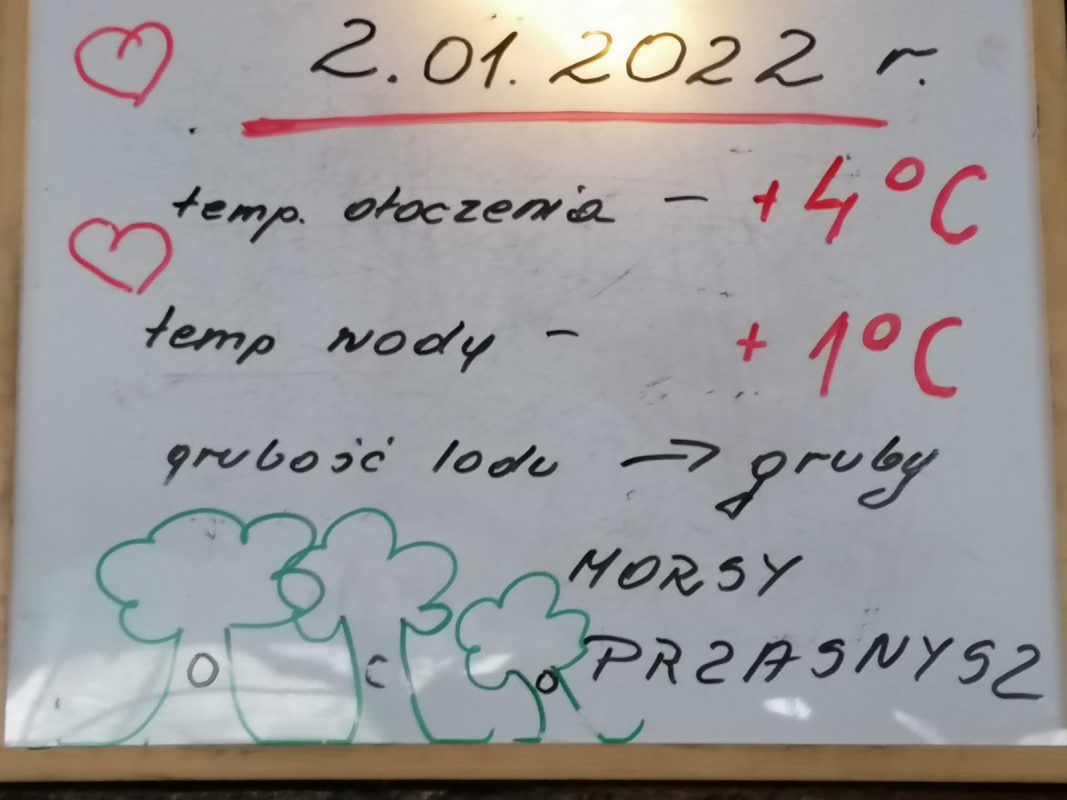 2.01.2022 r.
temp. otoczenia - +4°C
temp wody - +1°C
grubość lodu → gruby
MORSY
PRZASNYSZ
O C O